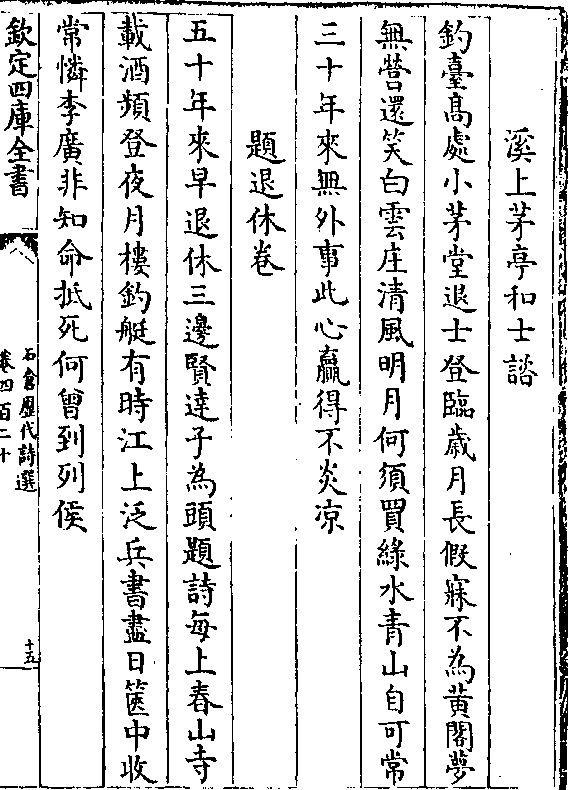 溪上茅亭和士諮
釣臺髙處小茅堂退士登臨歲月長假寐不為黄閣夢
無營還笑白雲庄清風明月何須買綠水青山自可常
三十年來無外事此心贏得不炎凉
題退休卷
五十年來早退休三邊賢達子為頭題詩每上春山寺
載酒頻登夜月樓釣艇有時江上泛兵書盡日篋中收
常憐李廣非知命抵死何曾到列侯
欽定四庫全書
石倉歷代詩選
卷四百二十
十五